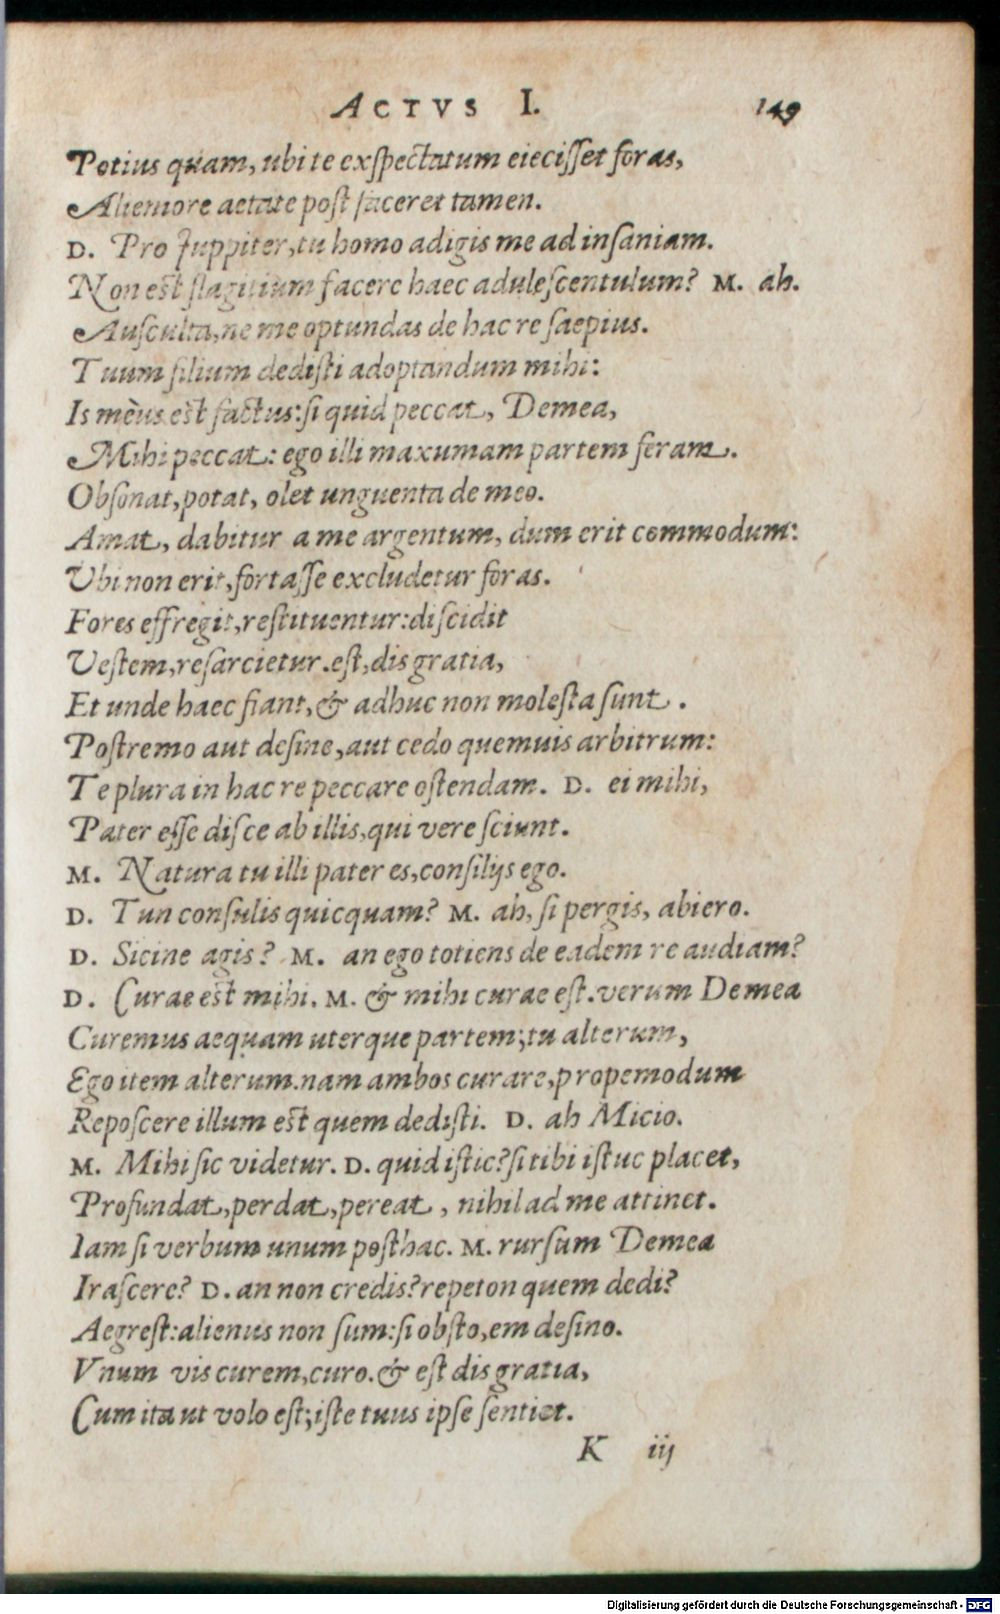 ACTVS I. 149
Potius quam, ubi te exspectatum eiecisset foras,
Alieniore aetate post faceret tamen.
D. Pro Juppiter, tu homo adigis me ad insaniam.
Non est flagitium facere haec adulescentulum? M. ah.
Ausculta, ne me optundas de hac re saepius.
Tuum filium dedisti adoptandum mihi:
Is mèus est factus: si quid peccat, Demea,
Mihi peccat: ego illi maxumam partem feram.
Obsonat, potat, olet unguenta de meo.
Amat, dabitur a me argentum, dum erit commodum:
Ubi non erit, fortasse excludetur foras.
Fores effregit, restituentur: discidit
Vestem, resarcietur. est, dis gratia,
Et unde haec fiant, & adhuc non molesta sunt.
Postremo aut desine, aut cedo quemuis arbitrum:
Te plura in hac re peccare ostendam. D. ei mihi,
Pater esse disce ab illis, qui vere sciunt.
M. Natura tu illi pater es, consilijs ego.
D. Tun consulis quicquam? M. ah, si pergis, abiero.
D. Sicine agis? M. an ego totiens de eadem re audiam?
D. Curae est mihi. M. & mihi curae est. verum Demea
Curemus aequam uterque partem; tu alterum,
Ego item alterum. nam ambos curare, propemodum
Reposcere illum est quem dedisti. D. ah Micio.
M. Mihi sic videtur. D. quid istic? si tibi istuc placet,
Profundat, perdat, pereat, nihil ad me attinet.
Iam si verbum unum posthac. M. rursum Demea
Irascere? D. an non credis? repeton quem dedi?
Aegrest: alienus non sum: si obsto, em desino.
Vnum vis curem, curo. & est dis gratia,
Cum ita ut volo est; iste tuus ipse sentiet.
K iij
Digitalisierung gefördert durch die Deutsche Forschungsgemeinschaft - DFG